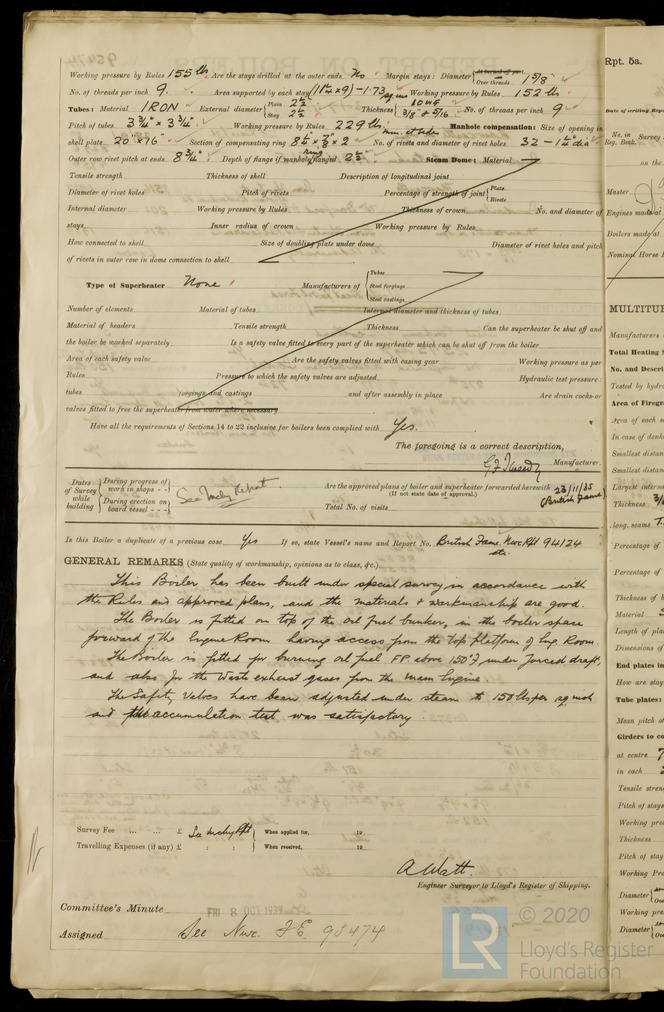 Working pressure by Rules 155 lbs Are the stays drilled at the outer ends No Margin stays: Diameter { At turned off part, or Over threads 1 5/8"
No. of threads per inch 9. Area supported by each stay Working pressure by Rules 152 lbs
Tubes: Material IRON External diameter { Plain 2 1/2" Stay 2 1/2" Thickness { 10 WG 3/8" & 5/16 No. of threads per inch 9
Pitch of tubes 3 3/4" x 3 3/4" Working pressure by Rules 229 lbs Manhole compensation: Size of opening in
shell plate 20" x 16" Section of compensating ring No. of rivets and diameter of rivet holes 32 - 1 1/4" dia
Outer row rivet pitch at ends 8 3/4" Depth of flange if manhole flanged 2 1/2" Steam Dome: Material
Tensile strength Thickness of shell Description of longitudinal joint
Diameter of rivet holes Pitch of rivets Percentage of strength of joint { Plate Rivets
Internal diameter Working pressure by Rules Thickness of crown No. and diameter of
stays Inner radius of crown Working pressure by Rules
How connected to shell Size of doubling plate under dome Diameter of rivet holes and pitch
of rivets in outer row in dome connection to shell
Type of Superheater None Manufacturers of { Tubes Steel forgings Steel castings
Number of elements Material of tubes Internal diameter and thickness of tubes
Material of headers Tensile strength Thickness Can the superheater be shut off and
the boiler be worked separately Is a safety valve fitted to every part of the superheater which can be shut off from the boiler
Area of each safety valve Are the safety valves fitted with easing gear Working pressure as per
Rules Pressure to which the safety valves are adjusted Hydraulic test pressure:
tubes forgings and castings and after assembly in place Are drain cocks or
valves fitted to free the superheater from water where necessary
Have all the requirements of Sections 14 to 22 inclusive for boilers been complied with Yes.
The foregoing is a correct description,
Manufacturer.
Dates of Survey while building { During progress of work in shops - - During erection on board vessel - - - See Mchy Report. Are the approved plans of boiler and superheater forwarded herewith 23/11/35
(If not state date of approval.) (British Fame)
Total No. of visits
Is this Boiler a duplicate of a previous case Yes If so, state Vessel's name and Report No. British Fame. Nwc Rpt 94124
GENERAL REMARKS (State quality of workmanship, opinions as to class, &c.)
This Boiler has been built under special survey in accordance with
the Rules and approved plans, and the materials & workmanship are good.
The Boiler is fitted on top of the oil fuel bunker, in the boiler space
forward of the Engine Room having access from the top platform of Eng. Room.
The Boiler is fitted for burning oil fuel FP above 150°F under forced draft,
and also for the Waste exhaust gases from the main Engine.
The Safety Valves have been adjusted under steam to 150 lbs per sq inch
and the accumulation test was satisfactory.
Survey Fee ... ... £ See mchy Rpt { When applied for, 19
Travelling Expenses (if any) £ : : When received, 19
A Watt.
Engineer Surveyor to Lloyd's Register of Shipping.
Committee's Minute FRI 8 OCT
Assigned See Nwc. F.E. 95474
LR © 2020
Lloyd's Register
Foundation
Rpt. 5a.
Date of writing Rep
No. in Survey
Reg. Book.
on the
Master
Engines made at
Boilers made at
Nominal Horse P
MULTITU
Manufacturers
Total Heating
No. and Descri
Tested by hydr
Area of Firegr
Area of each s
In case of donk
Smallest distan
Smallest distan
Largest intern
Thickness
long. seams
Percentage of
Percentage of
Thickness of b
Material
Length of plai
Dimensions of
End plates in
How are stay
Tube plates:
Mean pitch of
Girders to co
at centre
in each
Tensile stren
Pitch of stays
Working pre
Thickness
Pitch of stay
Working Pre
Diameter
Working pre
Diameter